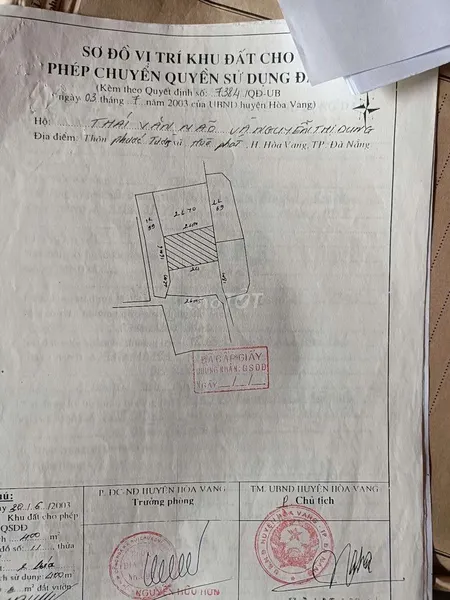 SƠ ĐỒ VỊ TRÍ KHU ĐẤT CHO
PHÉP CHUYỂN QUYỀN SỬ DỤNG Đ
(Kèm theo Quyết định số: 7384/QĐ-UB
ngày 03 tháng 7 năm 2003 của UBND huyện Hòa Vang)
Hộ: THÁI VĂN MÃO VÀ NGUYỄN THỊ DUNG
Địa điểm: Thôn Phước Tường xã Hòa Phát, H. Hòa Vang, TP. Đà Nẵng
2670
20m
20
26m
ĐÃ CẤP GIẤY
CHỨNG NHẬN: QSDĐ
NGÀY / /
chú:
ày 20/6/2003
Khu đất cho phép
QSDĐ
ch 400 m²
đồ số: 11 thửa
ch sử dụng: 400 m²
m² đất vườn
P. ĐC-NĐ HUYỆN HÒA VANG
Trưởng phòng
NGUYỄN HỮU
TM. UBND HUYỆN HÒA VANG
Chủ tịch